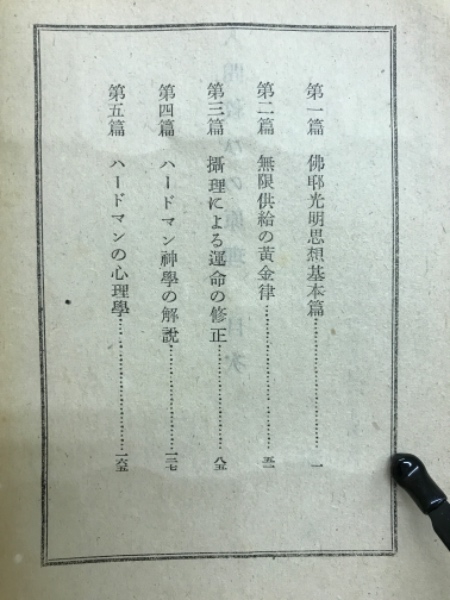 第一篇 佛耶光明思想基本篇……………………一
第二篇 無限供給の黃金律……………………五一
第三篇 攝理による運命の修正……………………八五
第四篇 ハードマン神學の解說……………………一二七
第五篇 ハードマンの心理學……………………一六五